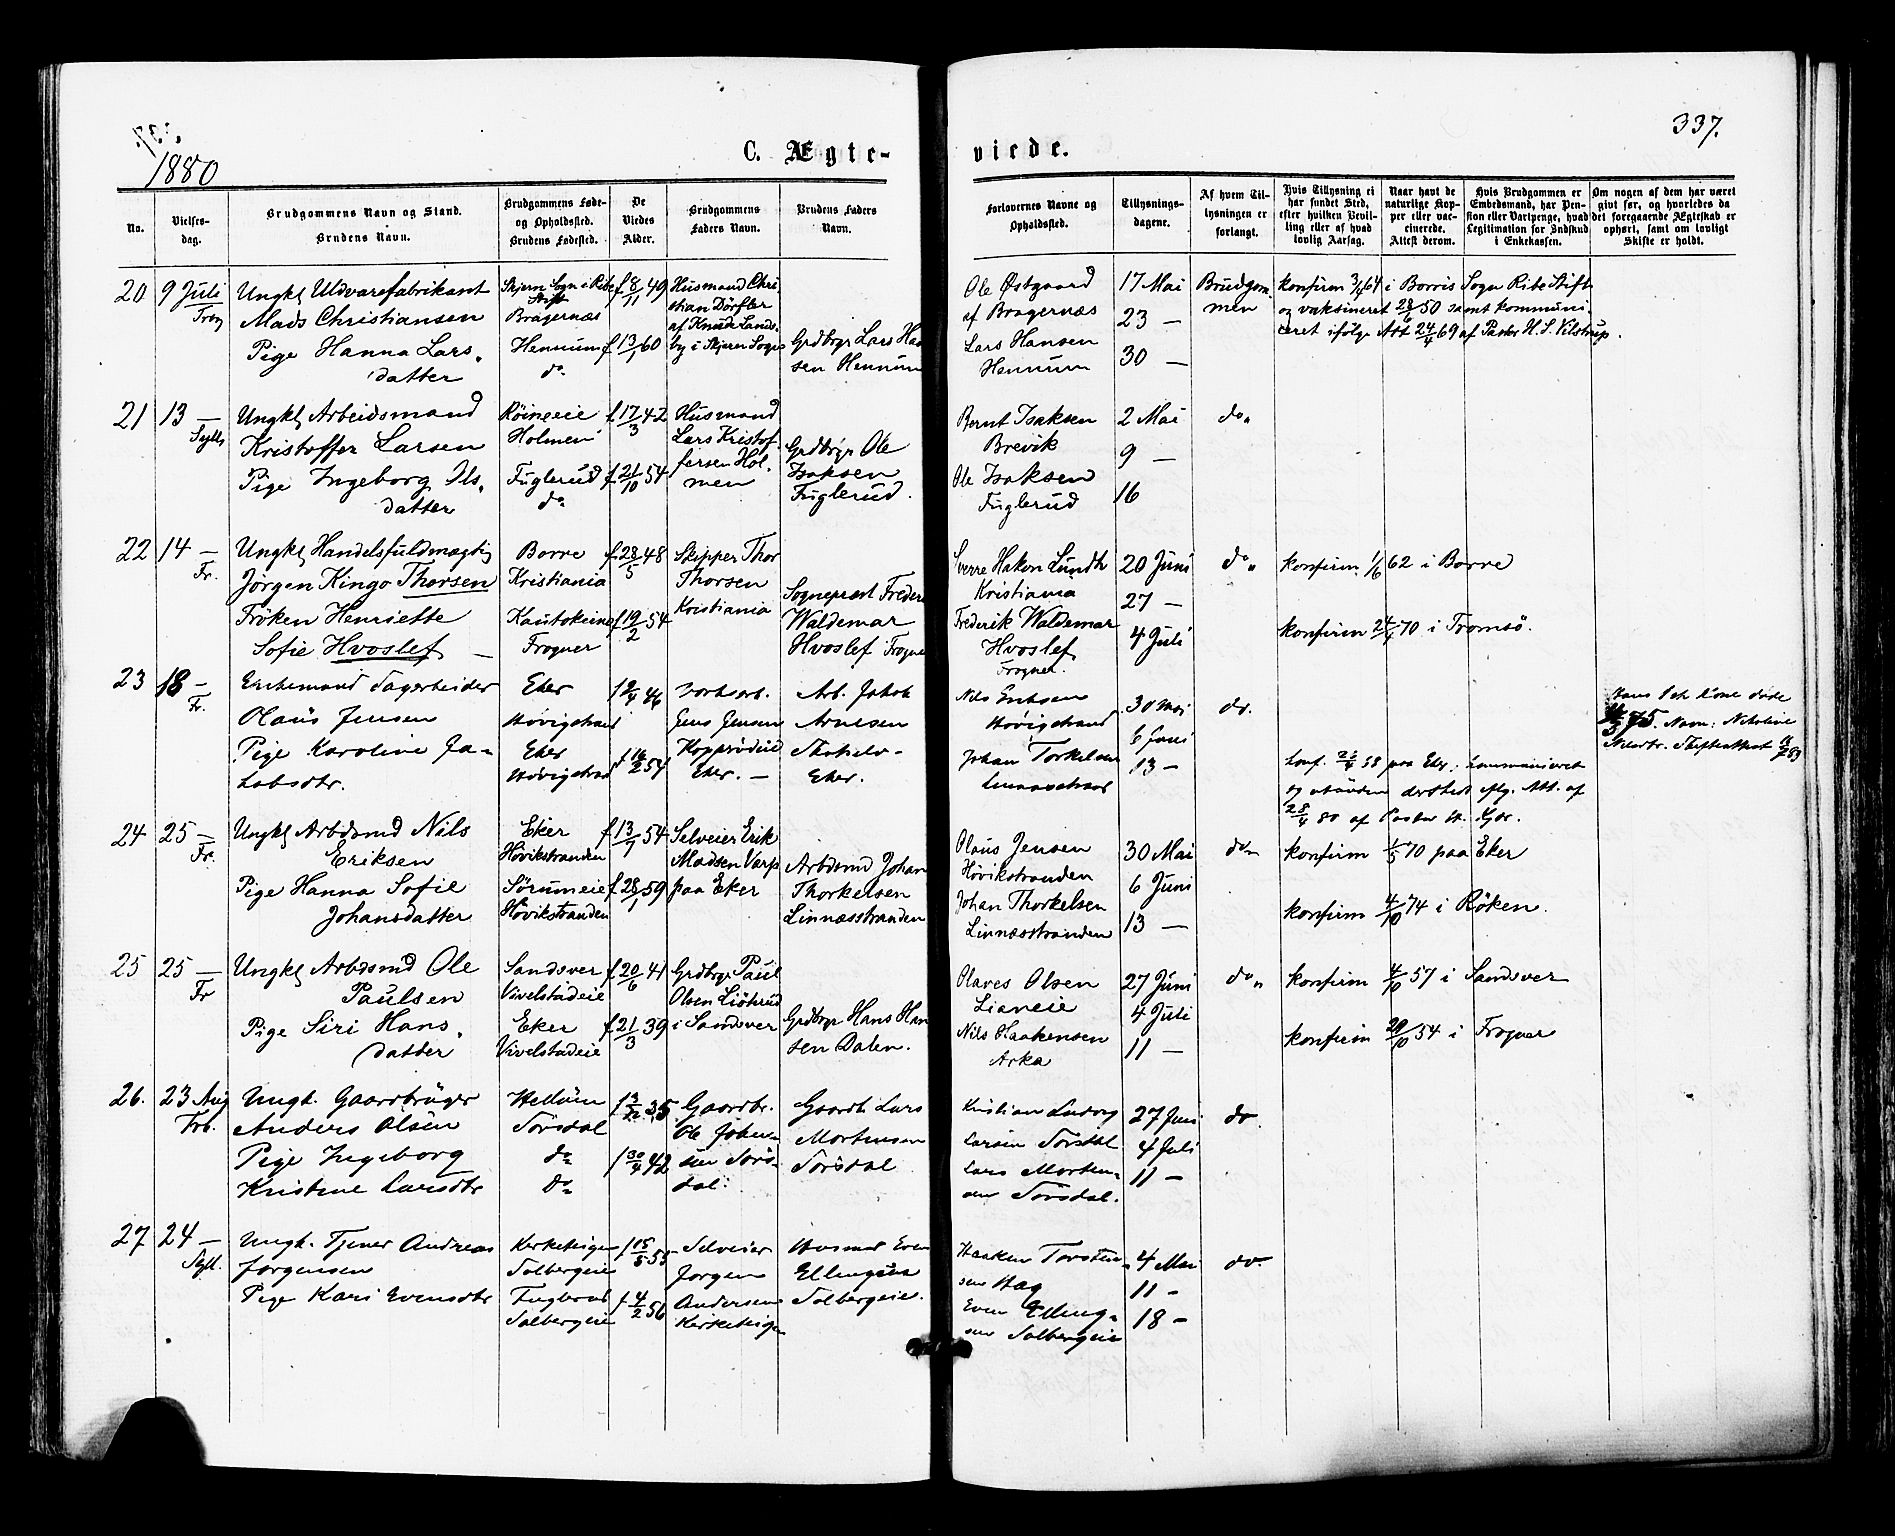 1880
337.
C. Ægte-
viede.
No.
Vielses-
dag.
Brudgommens Navn og Stand.
Brudens Navn.
Brudgommens Føde-
og Opholdssted.
Brudens Fødested.
De
Viedes
Alder.
Brudgommens
Faders Navn.
Brudens Faders
Navn.
Forlovernes Navne og
Opholdssted.
Tillysnings-
dagene.
Af hvem Til-
lysningen er
forlangt.
Hvis Tillysning ei
har fundet Sted,
efter hvilken Bevil-
ling eller af hvad
lovlig Aarsag.
Naar havt de
naturlige Kop-
per eller vac-
cinerede.
Attest derom.
Hvis Brudgommen er
Embedsmand, har Pen-
sion eller Vartpenge, hvad
Legitimation for Indskud
i Enkekassen.
Om nogen af dem har været
gift før, og hvorledes da
det foregaaende Ægteskab er
ophørt, samt om lovligt
Skifte er holdt.
20
9 Juli
Frog
Ungkl Uldvarefabrikant
Mads Christiansen
Pige Hanna Lars-
datter
Skjern Sogn i Ribe
Stift
Bragernæs
Hennum
do
f 8/11 49
f 13/1 60
Husmand Chri
stian Dörfler
af Knude Lands-
by i Skjern Sogn
Grdbrgr Lars Han
sen Hennum
Ole Østgaard
af Bragernæs
Lars Hansen
Hennum
17 Mai
23 —
30 —
Brudgom-
men
konfirm 3/4 64 i Borris Sogn Ribe Stift
og vaksineret 28/6 50 samt kommuni-
ceret ifølge Att 24/4 69 af Pastor H. S. Vilstrup.
21
13 —
Sylli
Ungkl Arbeidsmand
Kristoffer Larsen
Pige Ingeborg Ols-
datter
Röineeie
Holmen
Fuglerud
do
f 17/3 42
f 21/10 54
Husmand
Lars Kristof-
fersen Hol-
men
Grdbrgr Ole
Isaksen
Fuglerud.
Bernt Isaksen
Brevik
Ole Isaksen
Fuglerud
2 Mai
9 —
16
do
22
14 —
Fr.
Ungkl Handelsfuldmægtig
Jörgen Kingo Thorsen
Fröken Henriette
Sofie Hvoslef —
Borre
Kristiania
Kautokeino
Frogner
f 28/5 48
f 19/2 54
Skipper Thor
Thorsen
Kristiania
Sogneprest Frederi
Waldemar
Hvoslef Frogner
Sverre Hakon Lundh
Kristiania
Frederik Waldemar
Hvoslef
Frogner.
20 Juni
27 —
4 Juli
do
konfirm. 1/6 62 i Borre
konfirm 24/4 70 i Tromsö.
23
18 —
Fr.
Enkemand Sagarbeider
Olaüs Jensen
Pige Karoline Ja-
kobsdtr.
Eker
Høvigstrand
Eker
Høvigstrand
46
54
Jens Jensen
Eker. —
Arb. Jakob
Arnesen
Eker.
Nils Eriksen
Høvigstrand
Johan Torkelsen
Linnesstrand
30 Mai
6 Juni
13 —
do.
Hans
75. Navn: Nikoline
paa Eker,
af
80 af Pastor
24
25 —
Fr.
Ungkl Arbdsmd Nils
Eriksen
Pige Hanna Sofie
Johansdatter
Eker
Höviksstranden
Sörumeie
Hövikstranden
f 13/1 54
f 28/1 59
Selveier Erik
Madsen Varp
paa Eker
Arbdsmd Johan
Thorkelsen
Linnæsstranden
Olaüs Jensen
Hövikstranden
Johan Thorkelsen
Linnæsstranden
30 Mai
6 Juni
13 —
do
konfirm 1/5 70 paa Eker
konfirm 4/10 74 i Röken.
25
25 —
Fr
Ungkl Arbdsmd Ole
Paulsen
Pige Siri Hans-
datter
Sandsver
Vivelstadeie
Eker
Vivelstadeie
f 20/6 41
f 21/3 39
Grdbrgr Paul
Olsen Liöterud
i Sandsver
Grdbrgr Hans Han
sen Dalen.
Olaves Olsen
Lianeie
Nils Haakensen
Arka
27 Juni
4 Juli
11 —
do
konfirm 4/10 57 i Sandsver
konfirm 29/10 54 i Frogner
26.
23 Aug
Frb.
Ungk. Gaardbrüger
Anders Olsen
Pige Ingeborg
Kristine Larsdtr
Hellum
Torsdal
do
do
35
f 30/4 42
Gaardbr.
Ole Johan-
sen Tors-
dal.
Gaardb Lars
Mortensen
Torsdal
Kristian Ludvig
Larsen Torsdal
Lars Morten-
sen Torsdal.
27 Juni
4 Juli
11 —
do
27
24 —
Syll.
Ungk. Tjener Andreas
Jörgensen
Pige Kari Evensdtr
Solbergeie
Fuglerud
Solbergeie
f 15/5 55
f 4/2 56
Selveier
Jörgen
Andersen
Husmd Even
Ellingsen
Solbergeie.
Haaken Torsten-
sen Hag
Even Elling-
sen Solbergeie
4 Mai
11 -
18 -
do.